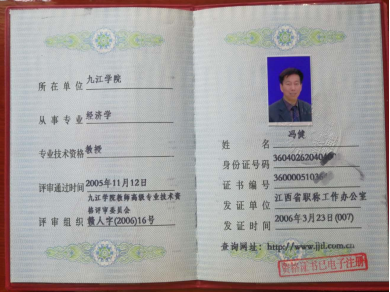 所在单位 九江学院
从事专业 经济学
专业技术资格 教授
评审通过时间 2005年11月12日
九江学院教师高级专业技术资
格评审委员会
评审组织 赣人字(2006)16号
姓名 冯健
身份证号码
证书编号
发证单位 江西省职称工作办公室
发证时间 2006年3月23日(007)
查询网址:http://www.jjtl.com.cn
资格证书已电子注册